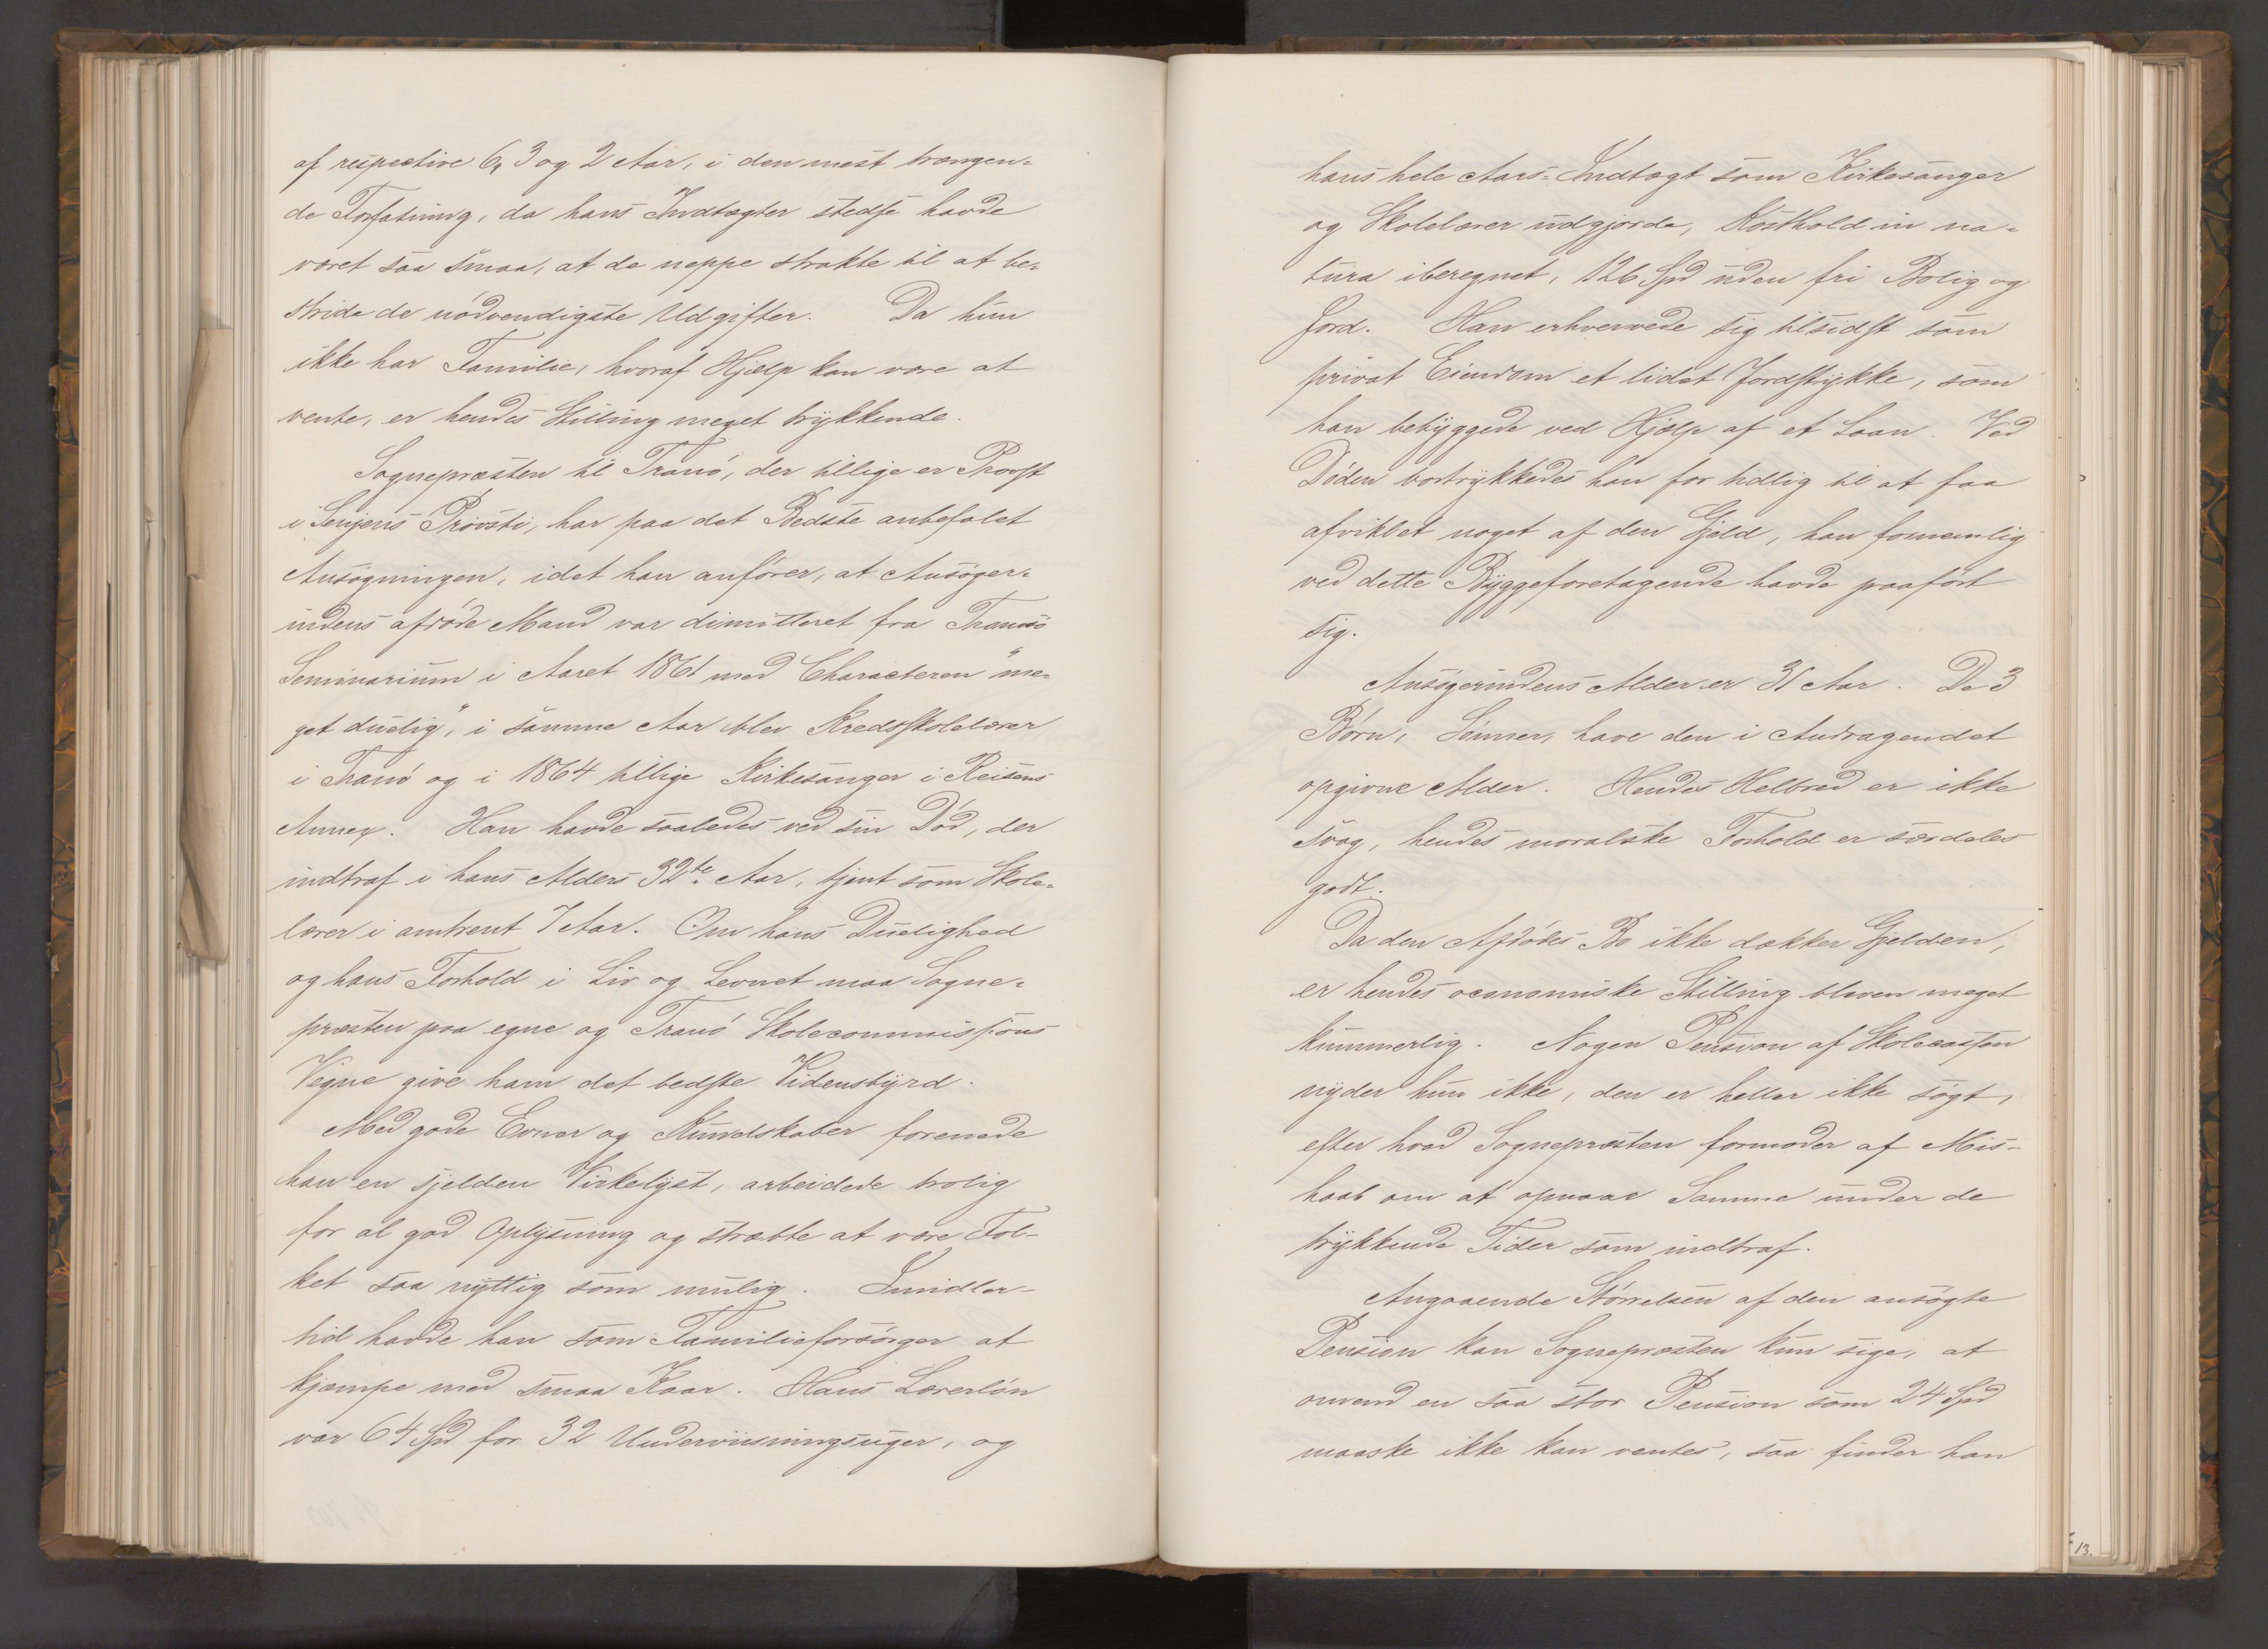 af respective 6, 3 og 2 Aar, i den mest trængen-
de Forfatning, da hans Indtægter stedse havde
været saa smaa, at de neppe strakte til at be-
stride de nødvendigste Udgifter. Da hun
ikke har Familie, hvoraf Hjælp kan være at
vente, er hendes Stilling meget trykkende.
Sognepræsten til Tranø, der tillige er Provst
i Senjens Provsti, har paa det Bedste anbefalet
Ansøgningen, idet han anfører, at Ansøger-
indens afdøde Mand var dimitteret fra Tromsø
Seminarium i Aaret 1861 med Characteren "me-
get duelig", i samme Aar blev Kredsskolelærer
i Tranø og i 1864 tillige Kirkesanger i Reisens
Annex. Han havde saaledes ved sin Død, der
indtraf i hans Alders 32te Aar, tjent som Skole-
lærer i omtrent 7 Aar. Om hans Duelighed
og hans Forhold i Liv og Levnet maa Sogne-
præsten paa egne og Tranø Skolecommissions
Vegne give ham det bedste Vidensbyrd.
Med gode Evner og Kundskaber forenede
han en sjelden Virkelyst, arbeidede trolig
for al god Oplysning og stræbte at være Fol-
ket saa nyttig som mulig. Imidler-
tid havde han som Familieforsørger at
kjæmpe med smaa Kaar. Hans Lærerløn
var 64 Spd for 32 Underviisningsuger, og
hans hele Aars-Indtægt som Kirkesanger
og Skolelærer udgjorde, Kosthold in na-
tura iberegnet, 126 Spd uden fri Bolig og
Jord. Han erhvervede sig tilsidst som
privat Eiendom et lidet Jordstykke, som
han bebyggede ved Hjælp af et Laan. Ved
Døden bortrykkedes han for tidlig til at faa
afviklet noget af den Gjeld, han fornemlig
ved dette Byggeforetagende havde paaført
sig.
Ansøgerindens Alder er 31 Aar. De 3
Børn, Sønner, have den i Andragendet
opgivne Alder. Hendes Helbred er ikke
svag, hendes moralske Forhold er særdeles
godt.
Da den Afdødes Bo ikke dækker Gjelden,
er hendes oeconomiske Stilling bleven meget
kummerlig. Nogen Pension af Skolecassen
nyder hun ikke, den er heller ikke søgt,
efter hvad Sognepræsten formoder af Mis-
haab om at opnaae Samme under de
trykkende Tider som indtraf.
Angaaende Størrelsen af den ansøgte
Pension kan Sognepræsten kun sige, at
omend en saa stor Pension som 24 Spd
maaske ikke kan ventes, saa finder han
13.